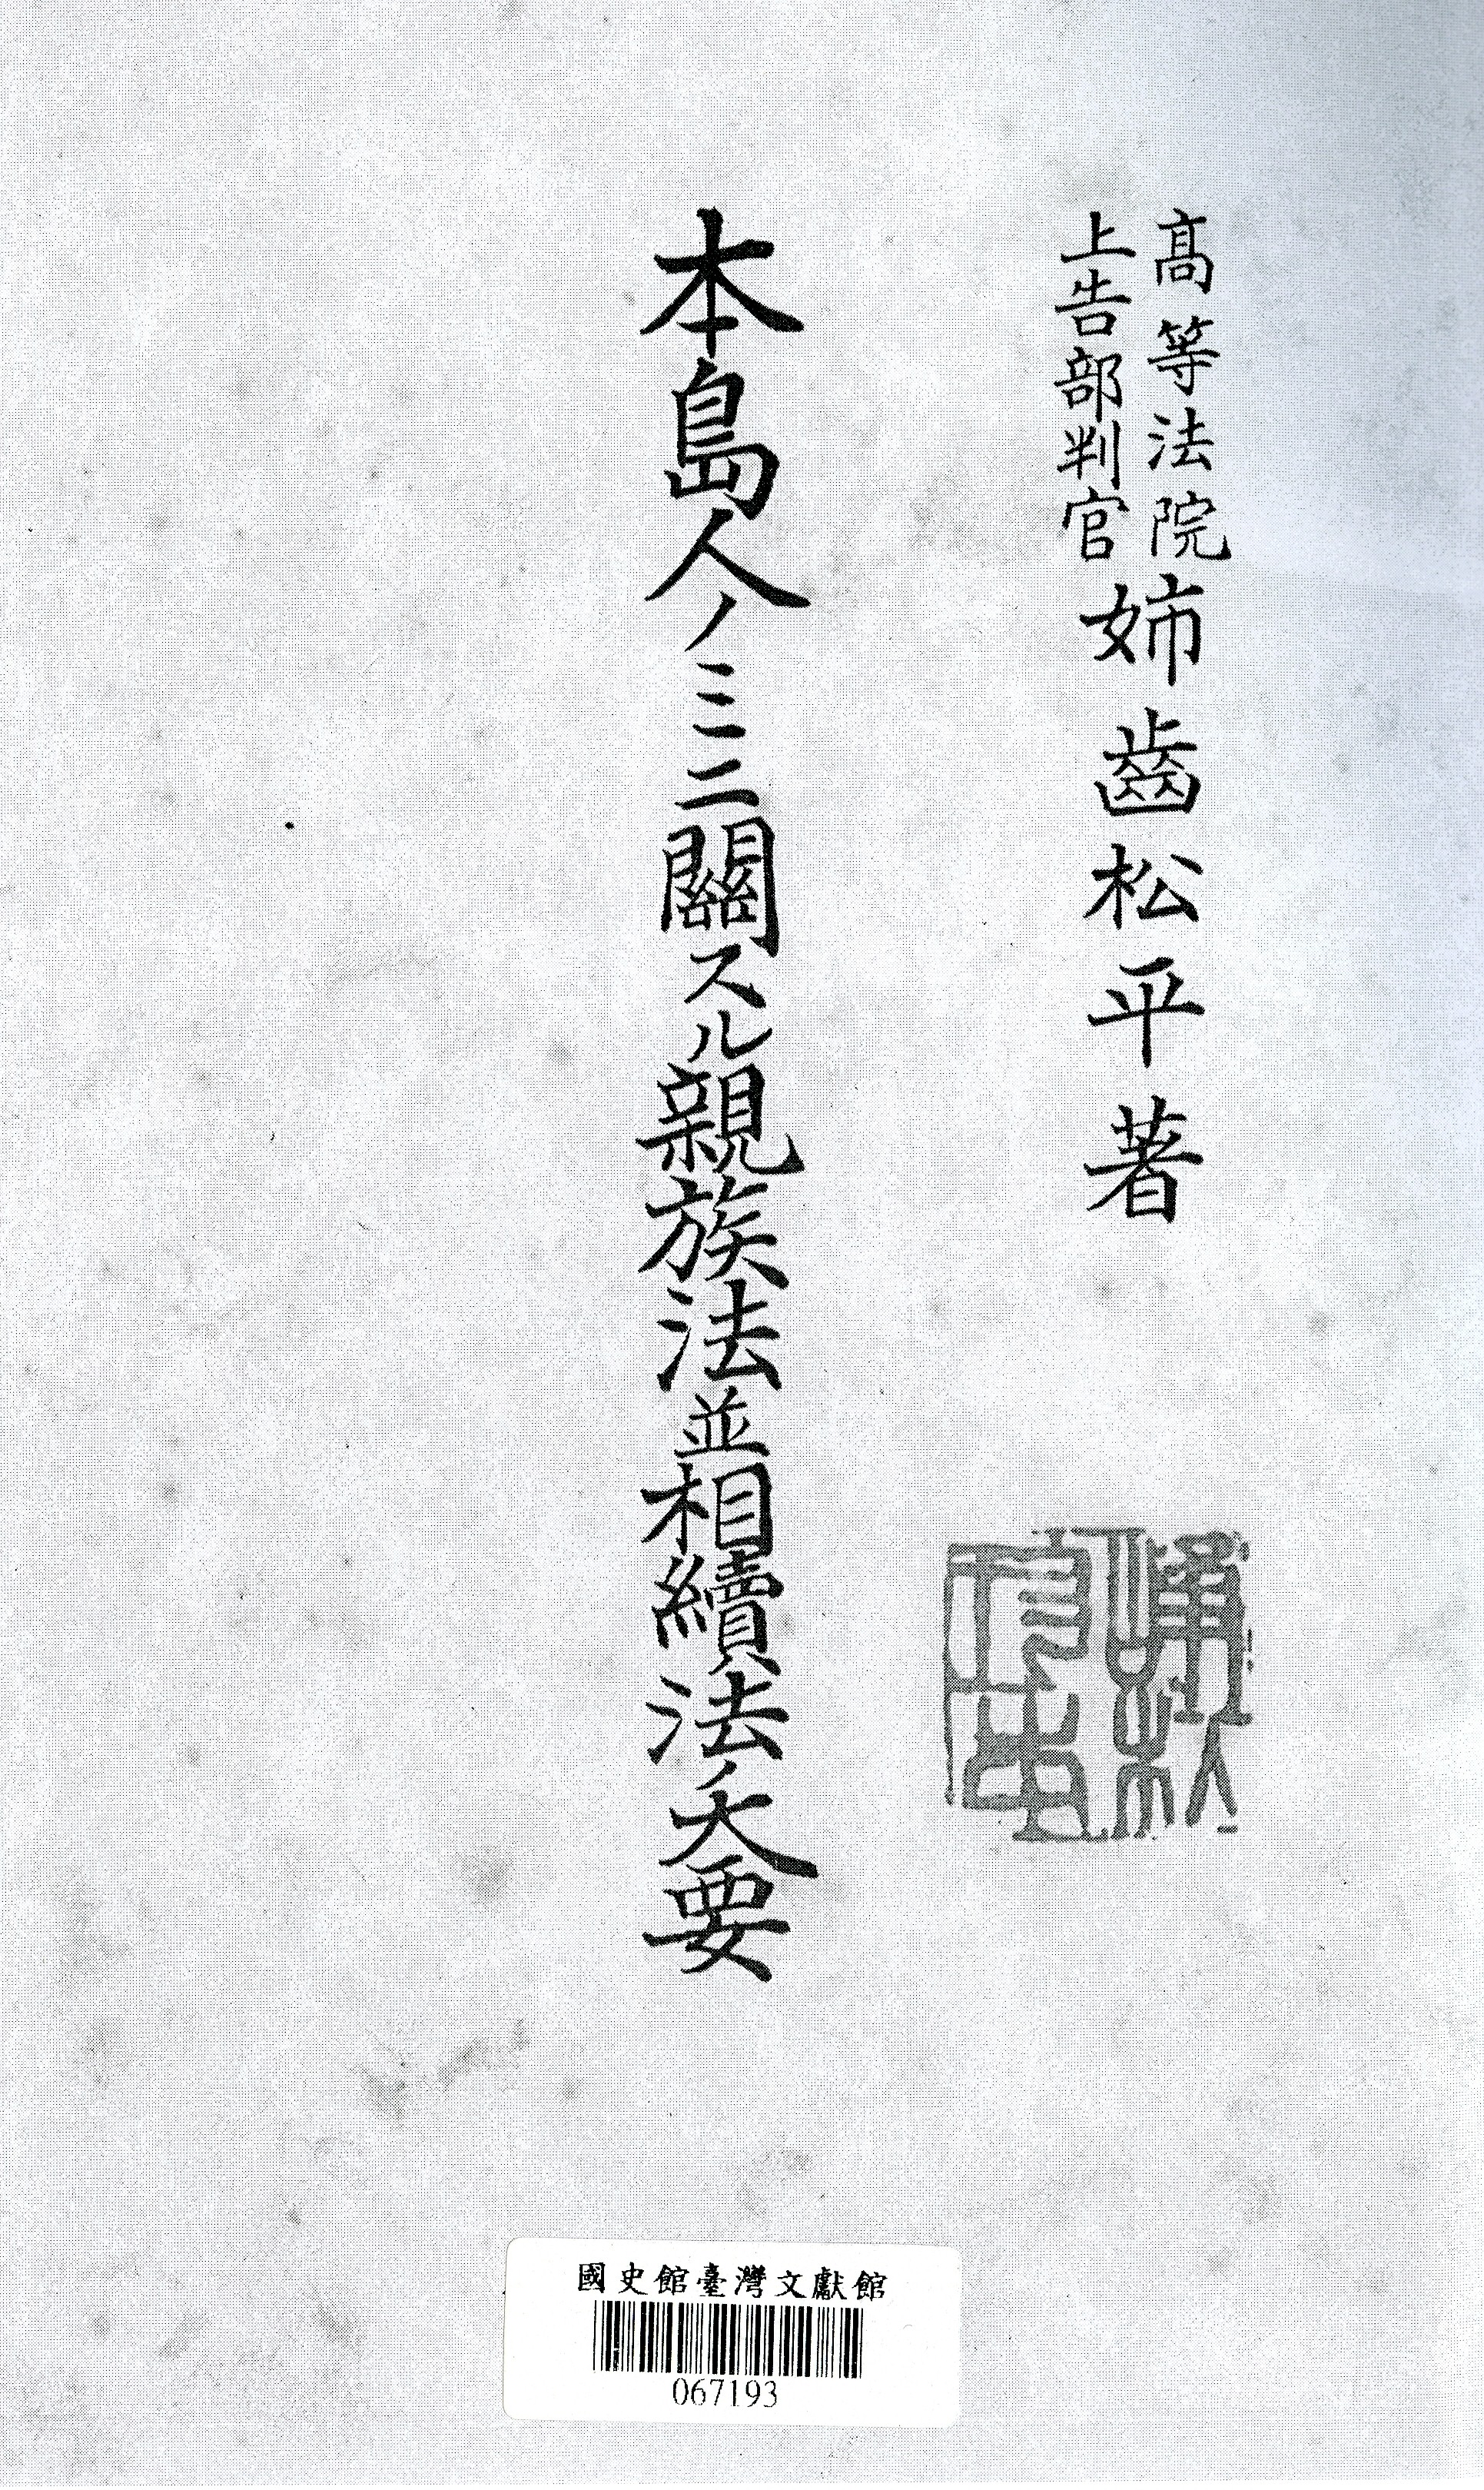 高等法院
上告部判官
姉齒松平著
本島人ノミニ關スル親族法並相續法ノ大要
國史館臺灣文獻館
067193